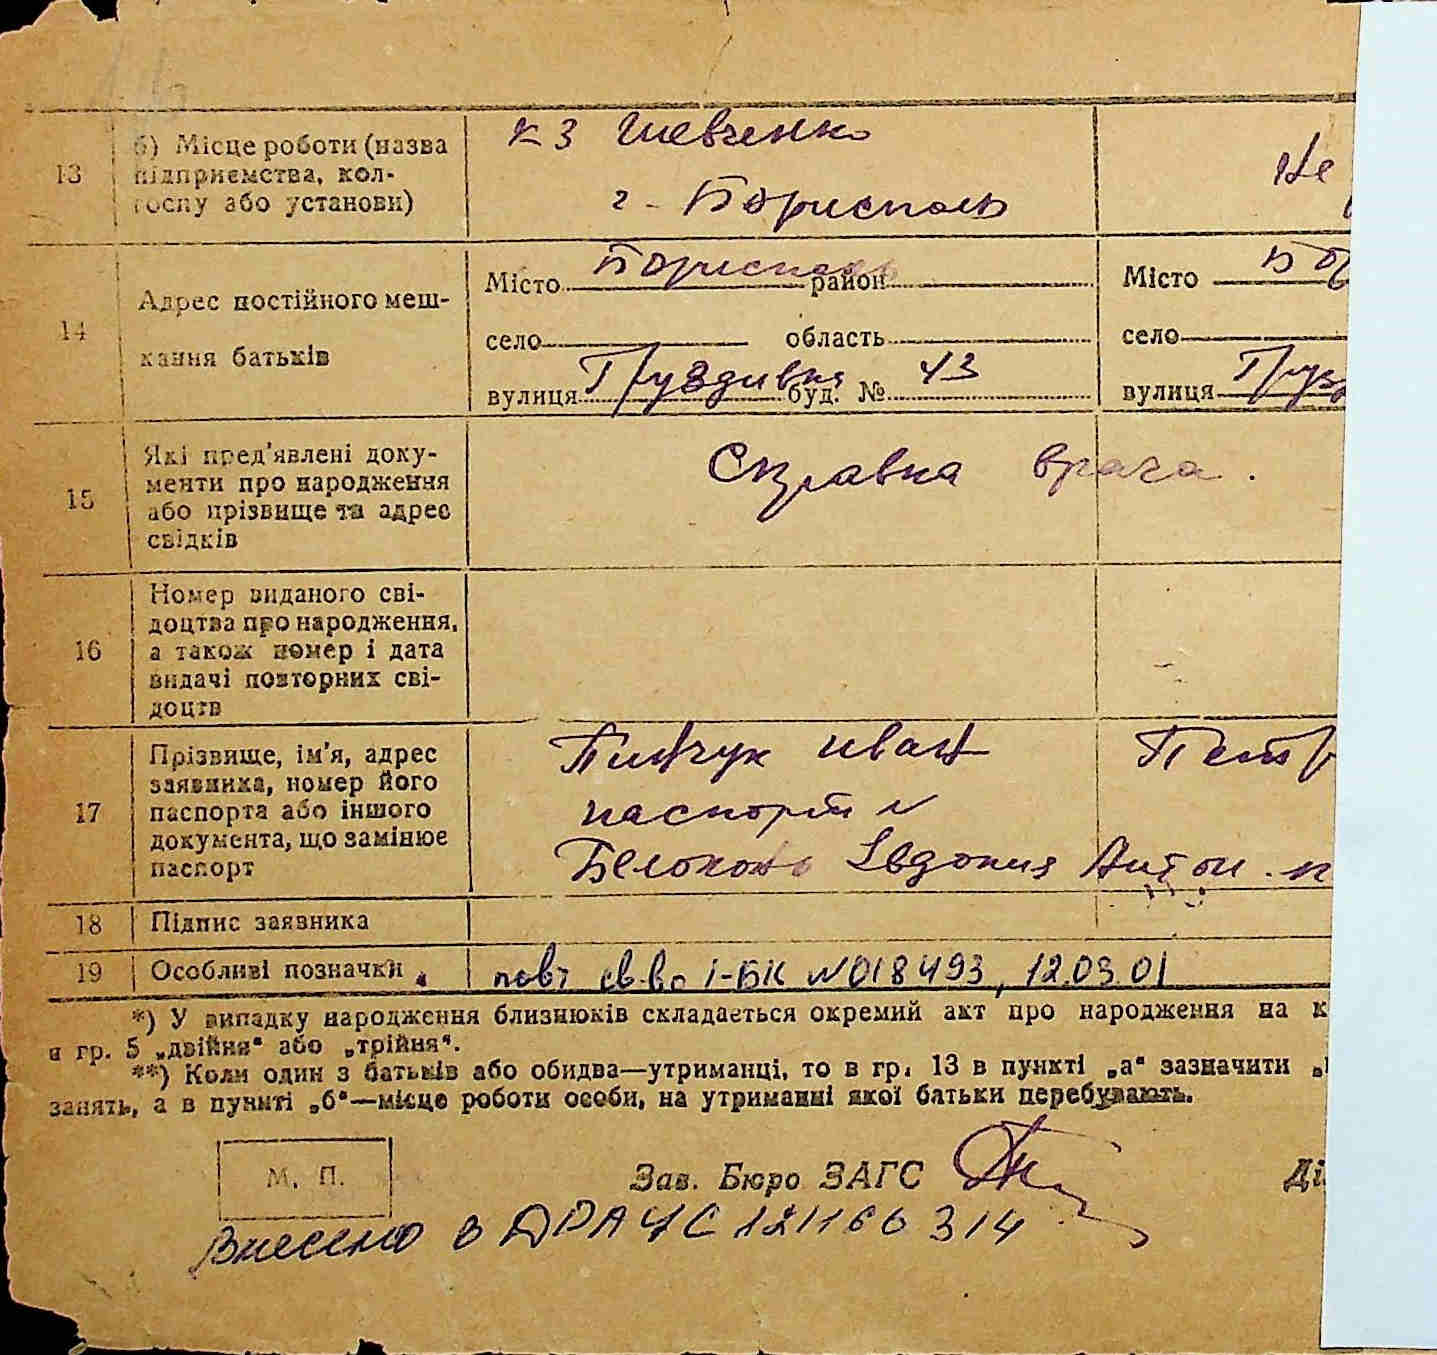 13
б) Місце роботи (назва
підприємства, кол-
госпу або установи)
кз Шевченко
г - Борисполь
Не
14
Адрес постійного меш-
кання батьків
Місто Борисполь район
село область
вулиця буд. № 43
Місто Бор
село
вулиця
15
Які пред'явлені доку-
менти про народження
або прізвище та адрес
свідків
Справка врача.
16
Номер виданого сві-
доцтва про народження,
а також номер і дата
видачі повторних сві-
доцтв
17
Прізвище, ім'я, адрес
заявника, номер його
паспорта або іншого
документа, що замінює
паспорт
Пинчук Иван Петр
паспорт №
Евдокия Антон. п
18 Підпис заявника
19 Особливі позначки
повт св-во І-БК №018493, 12.03.01
*) У випадку народження близнюків складається окремий акт про народження на к
в гр. 5 „двійня“ або „трійня“.
**) Коли один з батьків або обидва—утриманці, то в гр. 13 в пункті „а“ зазначити „
занять, а в пункті „б“—місце роботи особи, на утриманні якої батьки перебувають.
М. П.
Зав. Бюро ЗАГС
Ді
Внесено в ДРАЦС 12116 314